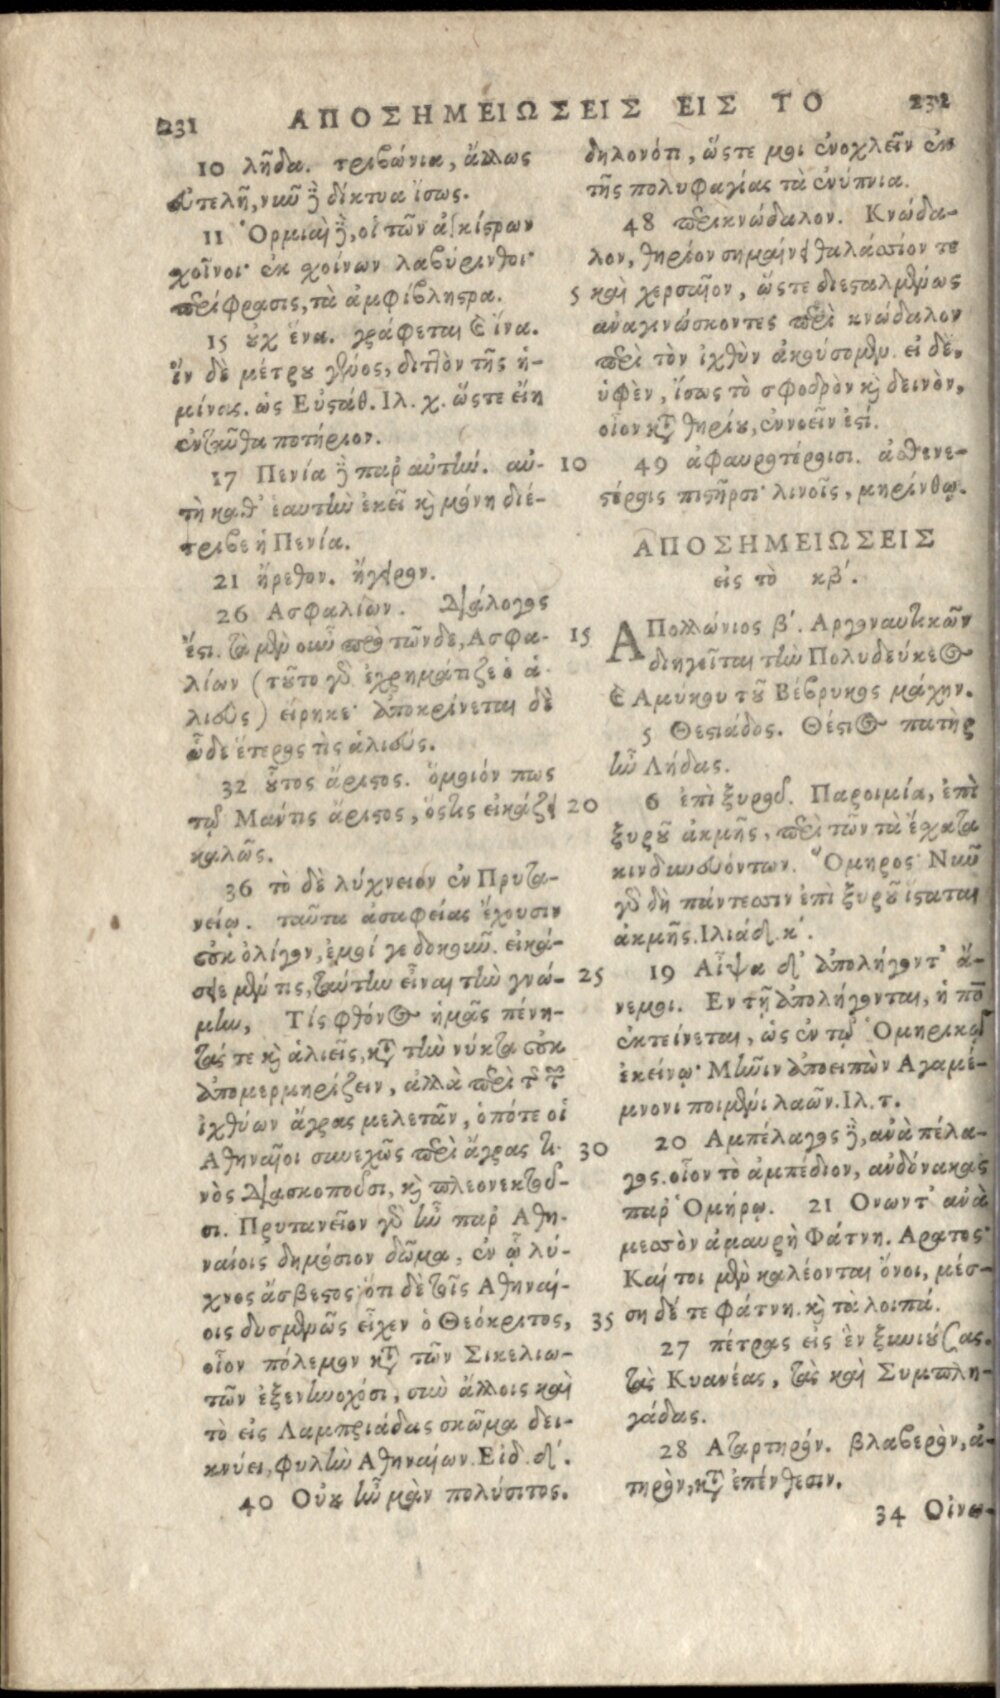 231 ΑΠΟΣΗΜΕΙΩΣΕΙΣ ΕΙΣ ΤΟ 232
10 λῆδα. τριβώνια, ἄλλως
εὐτελῆ, νῦν δὲ δίκτυα ἴσως.
11 Ὁρμιαὶ δὲ, οἱ τῶν ἀγκίστρων
χοῖνοι· ἐκ χοίνων λαβύρινθοι·
περίφρασις, τὰ ἀμφίβληστρα.
15 οὐχ ἕνα. γράφεται καὶ ἵνα.
ἵν δὲ μέτρου γένος, διπλὸν τῆς ἡ-
μίνας. ὡς Εὐστάθ. Ιλ. χ. ὥστε εἴη
ἐνταῦθα ποτήριον.
17 Πενία δὲ παρ αὐτὴν. αὐ-
τὴ καθ' ἑαυτὴν ἐκεῖ καὶ μόνη διέ-
τριβε ἡ Πενία.
21 ἤρεθον. ἤγειρον.
26 Ασφαλίων. Διάλογος
ἔστι. τὰ μὲν οὖν πρὸ τῶνδε, Ασφα-
λίων (τοῦτο γὰρ ἐχρημάτιζε ὁ ἁ-
λιεὺς) εἴρηκε· ἀποκρίνεται δὲ
ὧδε ἕτερος τὶς ἁλιεύς.
32 οὗτος ἄριστος. ὅμοιόν πως
τῷ Μάντις ἄριστος, ὅστις εἰκάζει
καλῶς.
36 τὸ δὲ λύχνειον ἐν Πρυτα-
νείῳ. ταῦτα ἀσαφείας ἔχουσιν
οὐκ ὀλίγον, ἐμοί γε δοκοῦν. εἰκά-
σειε μέν τις, ταύτην εἶναι τὴν γνώ-
μην, Τίς φθόνος ἡμᾶς πένη-
τάς τε καὶ ἁλιεῖς, κατὰ τὴν νύκτα οὐκ
ἀπομερμηρίζειν, ἀλλὰ περὶ τῆς τῶν
ἰχθύων ἄγρας μελετᾶν, ὁπότε οἱ
Αθηναῖοι συνεχῶς περὶ ἄγρας τι-
νὸς διασκοποῦσι, καὶ πλεονεκτοῦ-
σι. Πρυτανεῖον γὰρ ἦν παρ Αθη-
ναίοις δημόσιον δῶμα, ἐν ᾧ λύ-
χνος ἄσβεστος· ὅτι δὲ τοῖς Αθηναί-
οις δυσμενῶς εἶχεν ὁ Θεόκριτος,
οἷον πόλεμον κατὰ τῶν Σικελιω-
τῶν ἐξενηνοχόσι, σὺν ἄλλοις καὶ
τὸ εἰς Λαμπριάδας σκῶμα δει-
κνύει, φυλὴν Αθηναίων. Εἰδ. δ'.
40 Οὐκ ἦν μὰν πολύσιτος.
δηλονότι, ὥστε μοι ἐνοχλεῖν ἐκ
τῆς πολυφαγίας τὰ ἐνύπνια.
48 περικνώδαλον. Κνώδα-
λον, θηρίον σημαίνει θαλάσσιόν τε
5 καὶ χερσαῖον, ὥστε διεσταλμένως
ἀναγινώσκοντες περὶ κνώδαλον
περὶ τὸν ἰχθὺν ἀκούσομεν. εἰ δὲ,
ὑφὲν, ἴσως τὸ σφοδρὸν καὶ δεινὸν,
οἷον κατὰ θηρίου, ἐννοεῖν ἐστί.
10 49 ἀφαυροτέροισι. ἀσθενε-
στέροις πιστῆρσι· λινοῖς, μηρίνθῳ.
ΑΠΟΣΗΜΕΙΩΣΕΙΣ
εἰς τὸ κβ'.
15 ΑΠολλώνιος β'. Αργοναυτικῶν
διηγεῖται τὴν Πολυδεύκεος
καὶ Αμύκου τοῦ Βέβρυκος μάχην.
5 Θεστιάδος. Θέστιος πατὴρ
ἦν Λήδας.
20 6 ἐπὶ ξυροῦ. Παροιμία, ἐπὶ
ξυροῦ ἀκμῆς, περὶ τῶν τὰ ἔσχατα
κινδυνευόντων. Ὅμηρος· Νῦν
γὰρ δὴ πάντεσσιν ἐπὶ ξυροῦ ἵσταται
ἀκμῆς. Ιλιάδ. κ'.
25 19 Αἶψα δ' ἀπολήγοντ' ἄ-
νεμοι. Εν τῇ ἀπολήγονται, ἡ πο
ἐκτείνεται, ὡς ἐν τῷ Ὁμηρικῷ
ἐκείνῳ· Μῆνιν ἀποειπὼν Αγαμέ-
μνονι ποιμένι λαῶν. Ιλ. τ.
30 20 Αμπέλαγος δὲ, ἀνὰ πέλα-
γος. οἷον τὸ ἀμπέδιον, ἀνδόνακας
παρ Ὁμήρῳ. 21 Ονων τ' ἀνὰ
μεσσὸν ἀμαυρὴ Φάτνη. Αρατος·
Καί τοι μὲν καλέονται ὄνοι, μέσ-
35 ση δέ τε Φάτνη. καὶ τὰ λοιπά.
27 πέτρας εἰς ἓν ξυνιούσας.
τὰς Κυανέας, τὰς καὶ Συμπλη-
γάδας.
28 Αταρτηρόν. βλαβερὸν, ἀ-
τηρὸν, κατὰ ἐπένθεσιν.
34 Οἰνω-